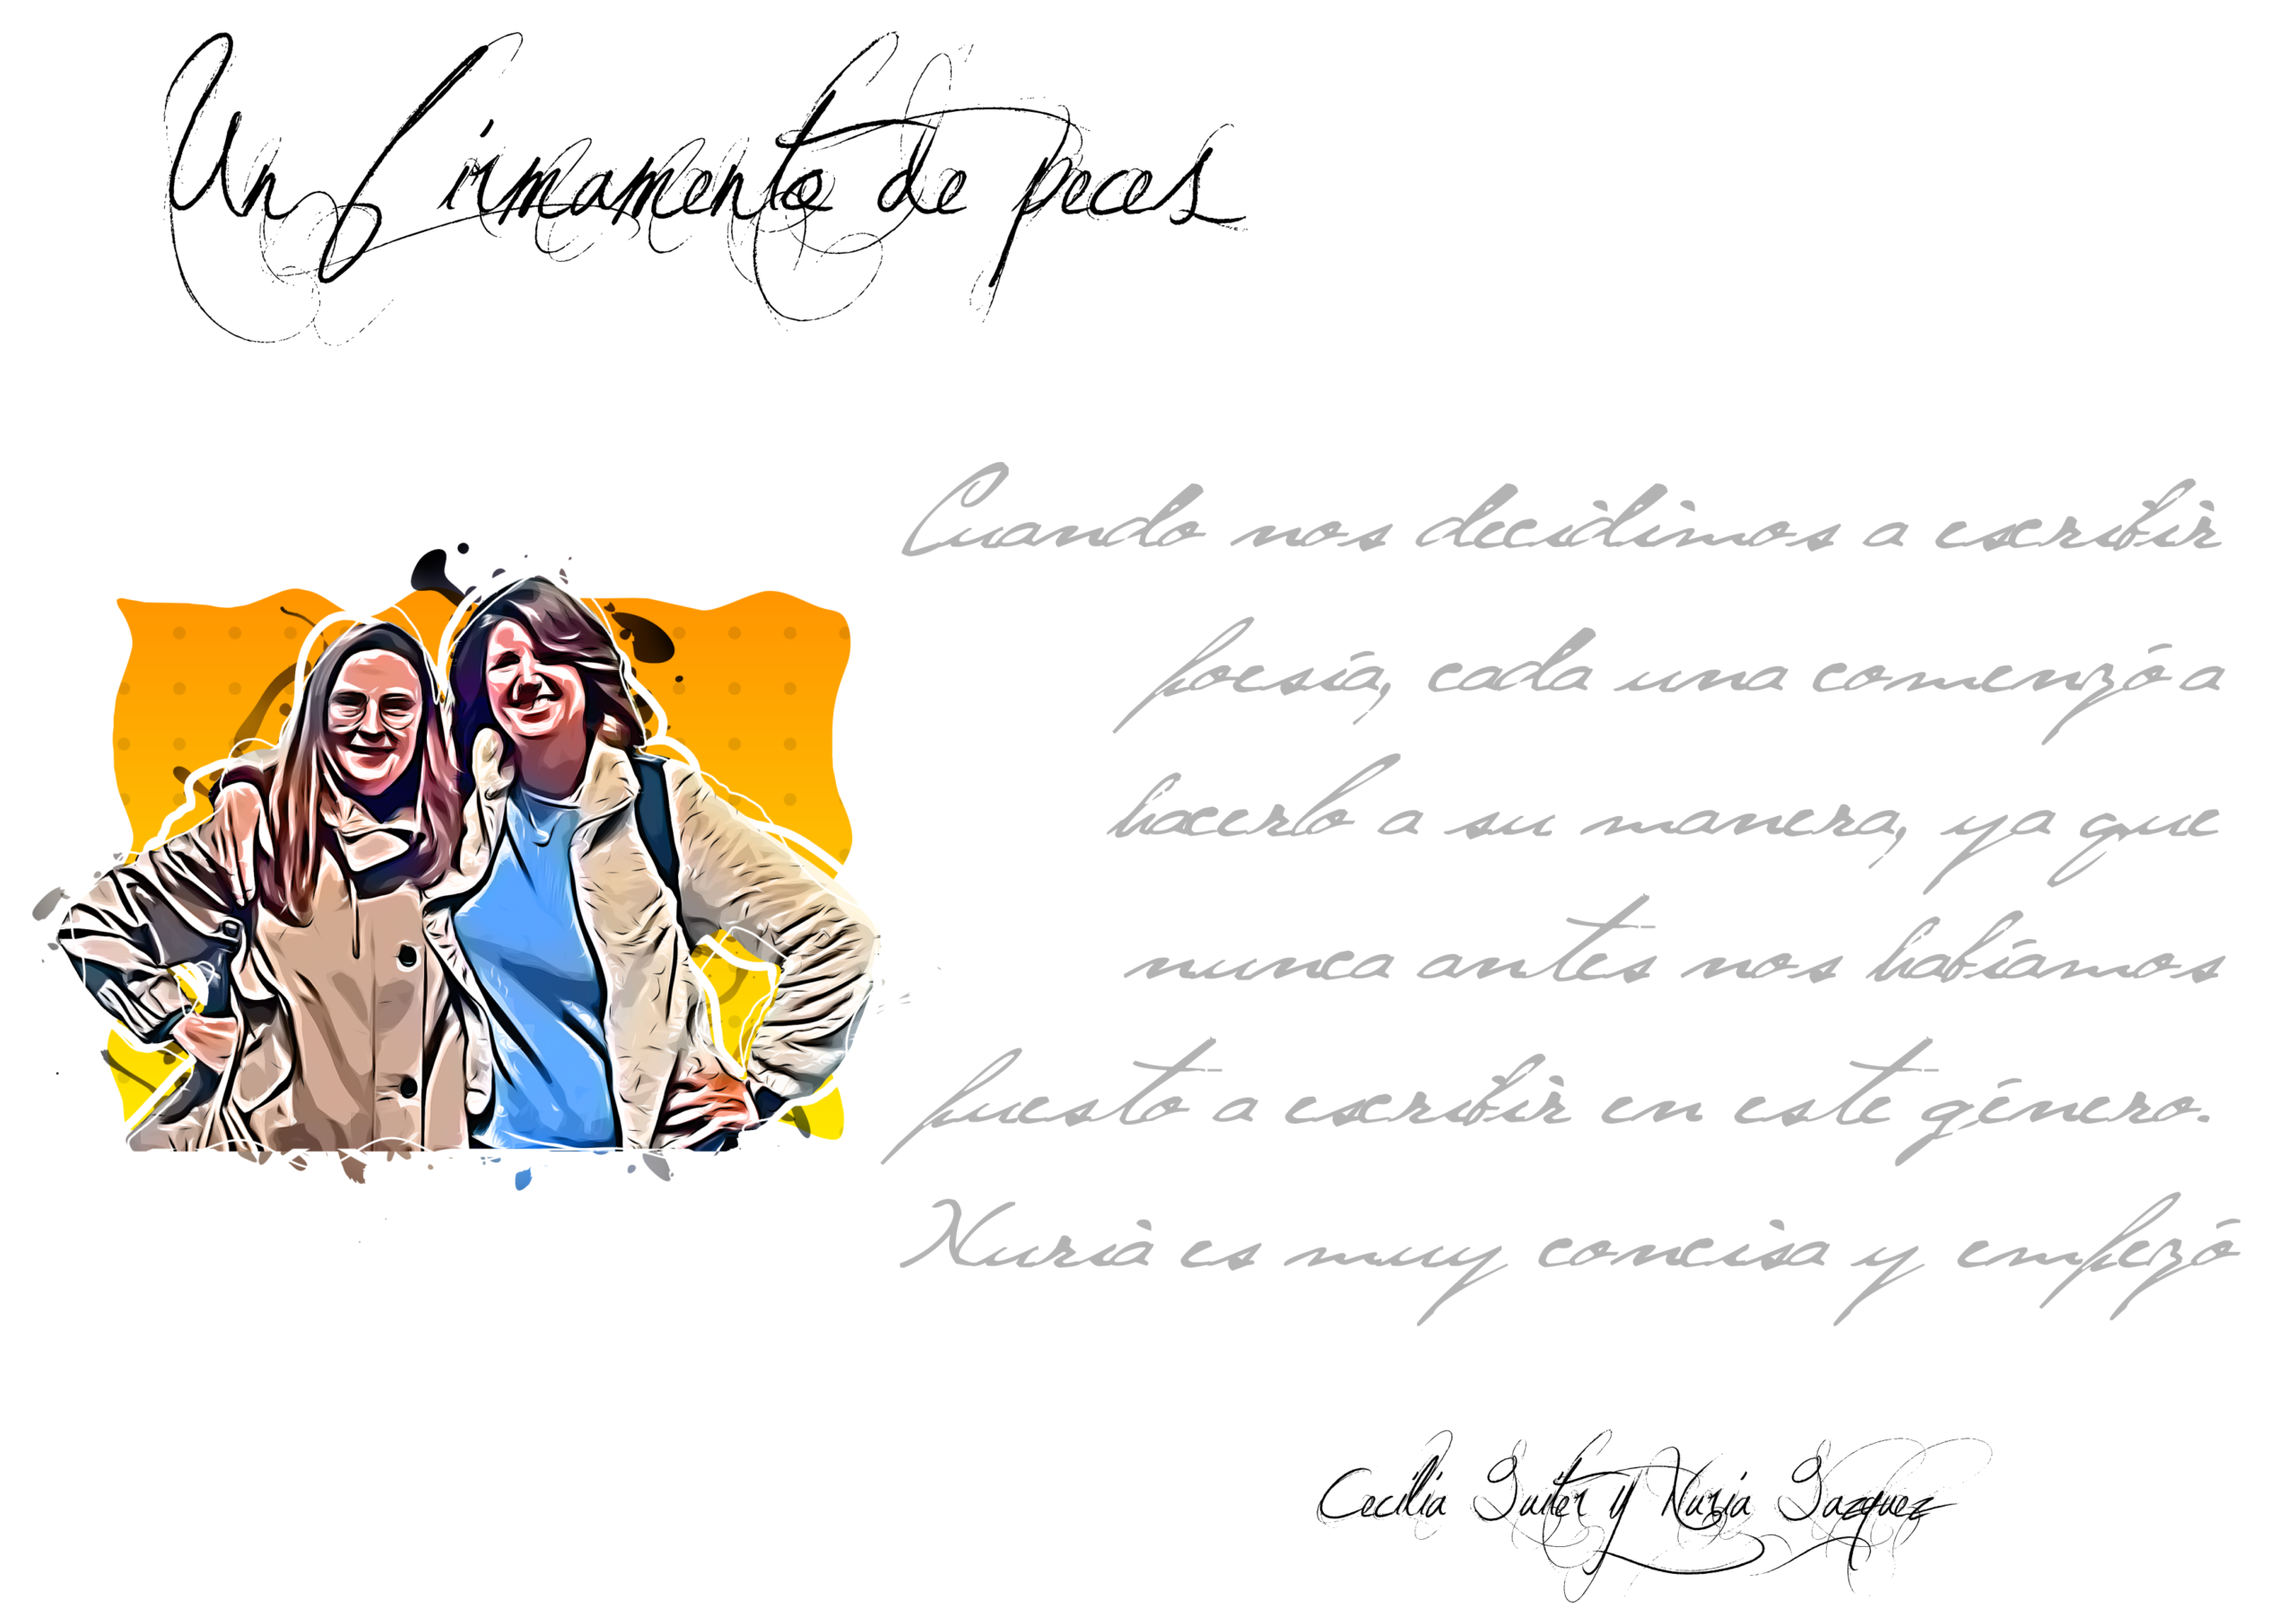 Un firmamento de peces
Cuando nos decidimos a escribir
poesía, cada una comenzó a
hacerlo a su manera, ya que
nunca antes nos habíamos
puesto a escribir en este género.
Nuria es muy concisa y empezó
Cecilia Guiter y Nuria Gazquez